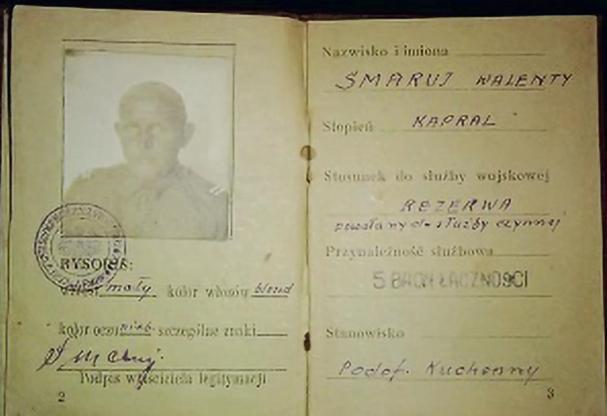 RYSOPIS:
wzrost mały kolor włosów blond
kolor oczu nieb. szczególne znaki
Podpis właściciela legitymacji
2
Nazwisko i imiona
SMARUJ WALENTY
Stopień KAPRAL
Stosunek do służby wojskowej
REZERWA
powołany do służby czynnej
Przynależność służbowa
5 BAON ŁĄCZNOŚCI
Stanowisko
Podof. Kuchenny
3